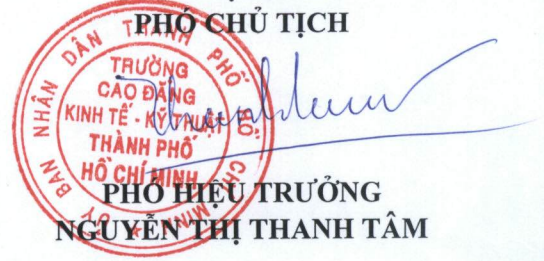 PHÓ CHỦ TỊCH
ỦY BAN NHÂN DÂN THÀNH PHỐ HỒ CHÍ MINH
TRƯỜNG
CAO ĐẲNG
KINH TẾ - KỸ THUẬT
THÀNH PHỐ
HỒ CHÍ MINH
PHÓ HIỆU TRƯỞNG
NGUYỄN THỊ THANH TÂM